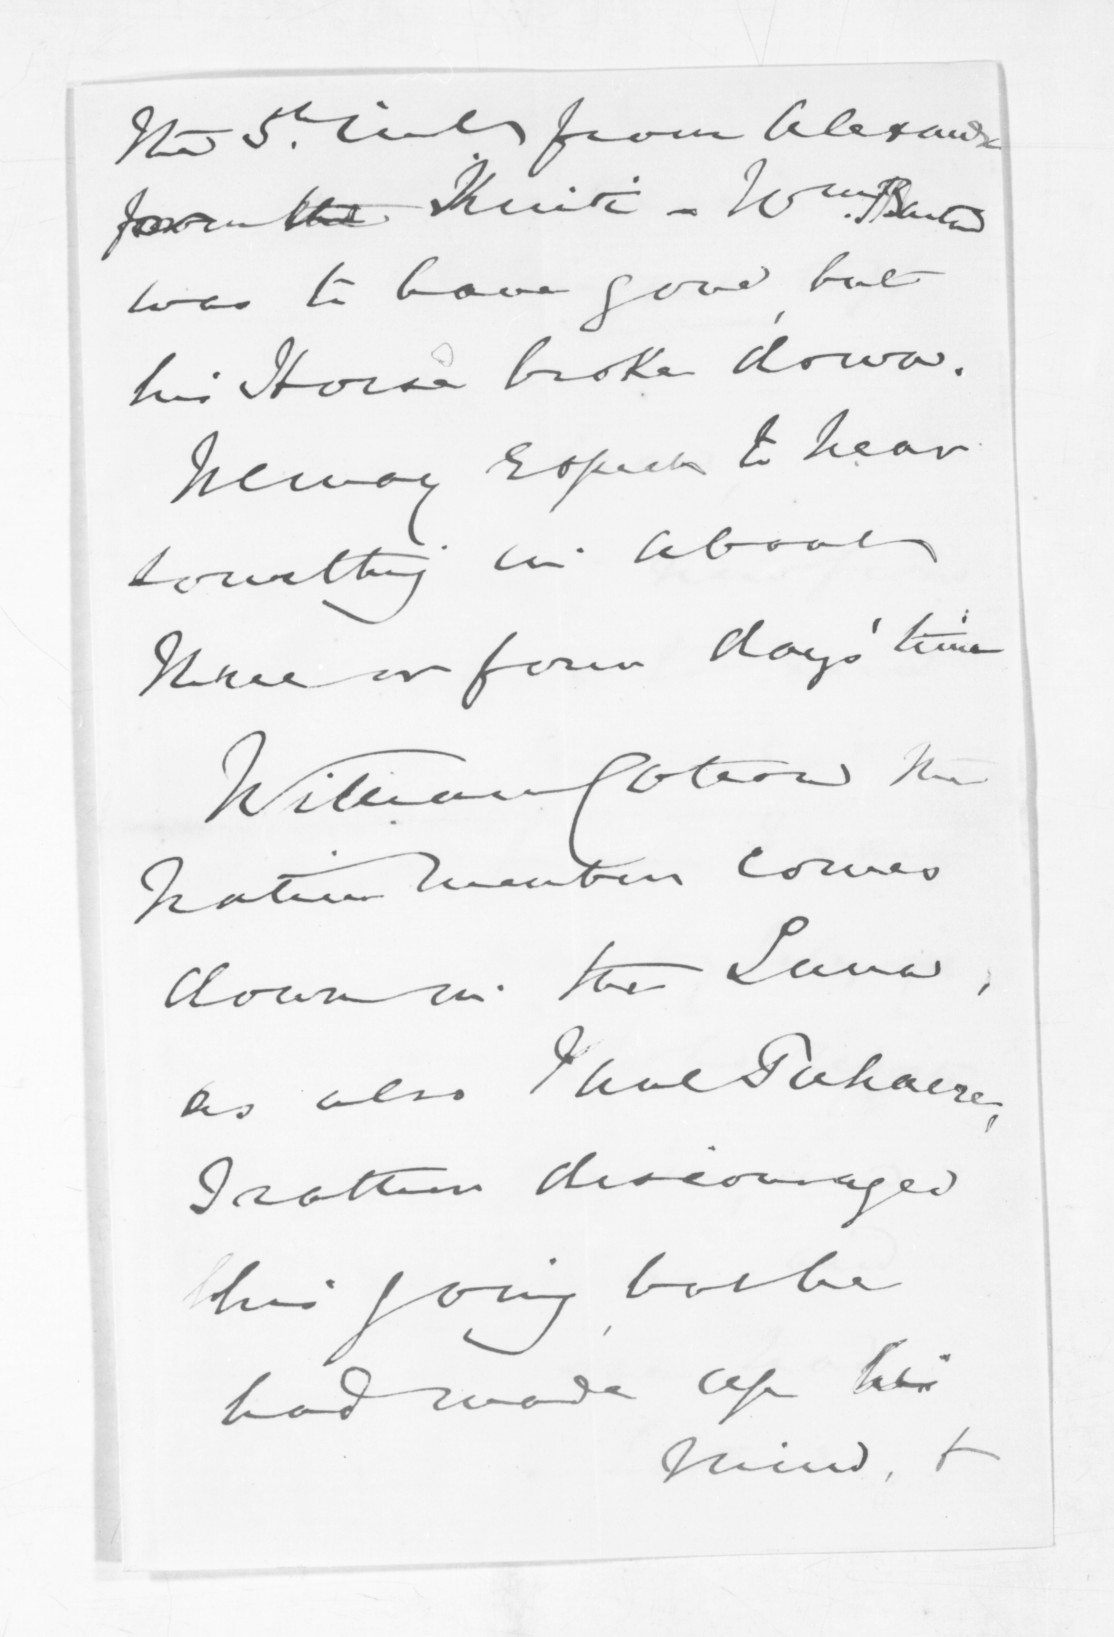 the 5th inst from Alexandra
from the Kuiti - Wm. Barton
was to have gone, but
his Horse broke down.
We may expect to hear
something in about
three or four days' time
William Cotton the
native member comes
down in the Luna,
as also Paul Tuhaere,
I rather discouraged
his going, but he
had made up his
mind, +